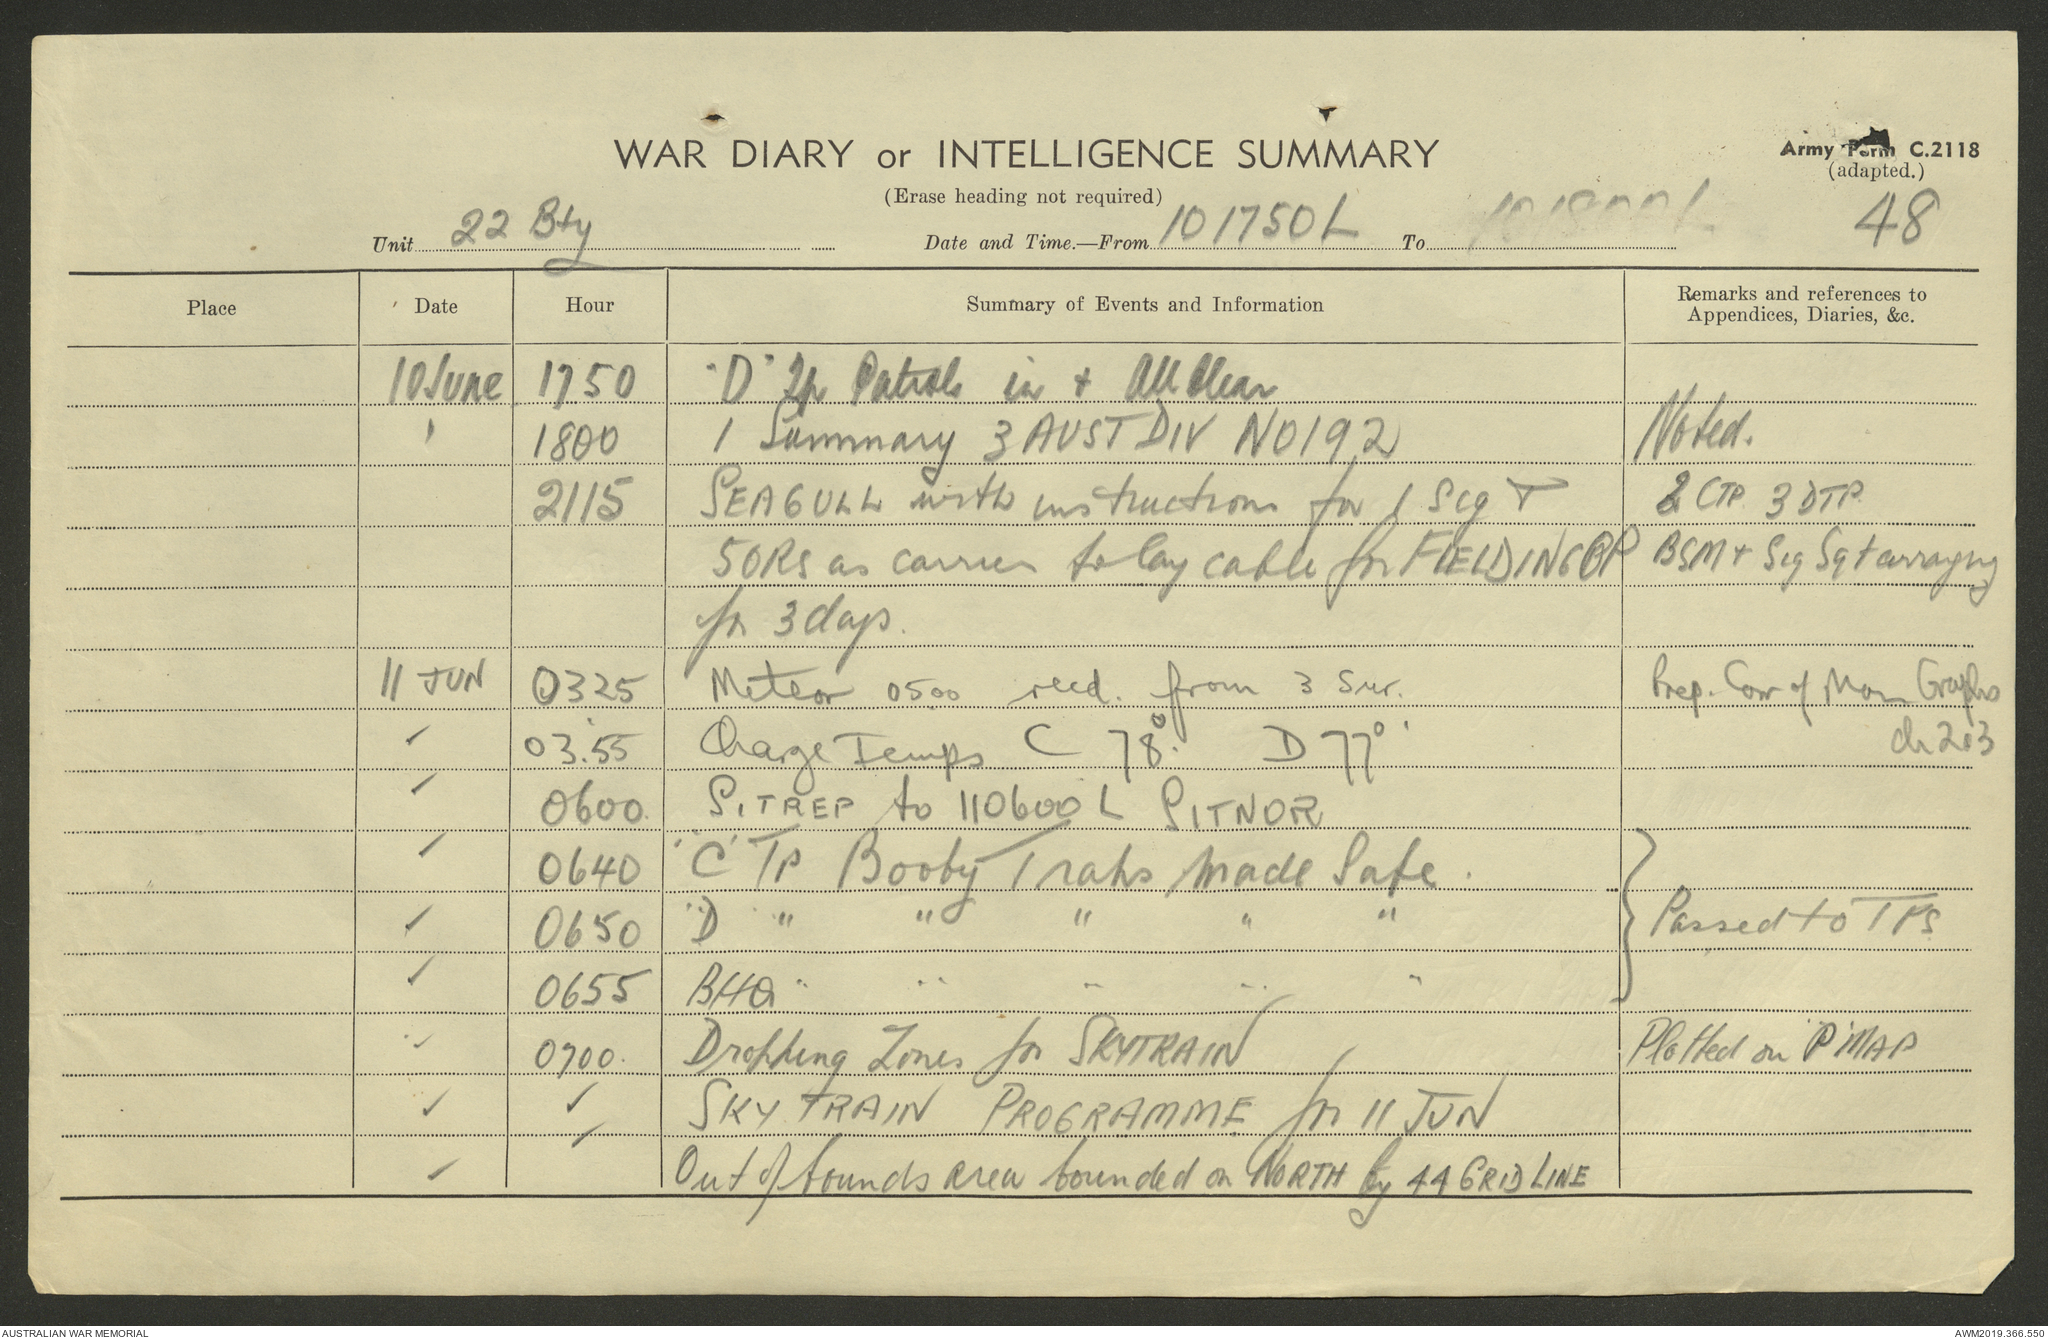 WAR DIARY or INTELLIGENCE SUMMARY
Army Form C.2118
(adapted.)
(Erase heading not required)
48
Unit 22 Bty Date and Time.—From 101750L To 101800L
Place Date Hour Summary of Events and Information Remarks and references to Appendices, Diaries, &c.
10 June 1750 "D" Tp Patrols in + All Clear
' 1800 1 Summary 3 AUST DIV NO 192 Noted.
2115 SEAGULL with instructions for 1 Sig + 2 CTP 3 DTP.
5 ORs as carriers to lay cable for FIELDING OP BSM + Sig Sgt arranging
for 3 days.
11 JUN 0325 Meteor 0500 recd. from 3 Sur. Prep. Corr of Mom Graphs
✓ 03.55 Charge Temps C 78°. D 77° ch 2+3
✓ 0600. SITREP to 110600 L SITNOR
✓ 0640 "C" TP Booby Traps Made Safe.
✓ 0650 "D " " " " " } Passed to TPS
✓ 0655 BHQ " " " " "
✓ 0700. Dropping Zones for SKYTRAIN Plotted on "P" MAP
✓ ✓ SKYTRAIN PROGRAMME for 11 JUN
✓ ✓ Out of bounds area bounded on NORTH by 44 GRID LINE
AUSTRALIAN WAR MEMORIAL
AWM2019.366.550